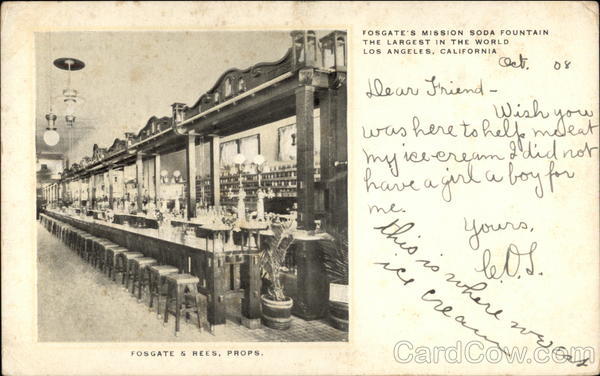 FOSGATE'S MISSION SODA FOUNTAIN
THE LARGEST IN THE WORLD
LOS ANGELES, CALIFORNIA
Oct. 08
Dear Friend-
Wish you
was here to help me eat
my ice-cream I did not
have a girl a boy for
me.
Yours,
C.O.S.
this is where we
ice cream
FOSGATE & REES, PROPS.
CardCow.com